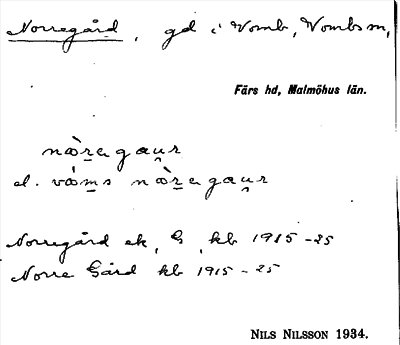 Norregård, gd i Vomb, Vombs sn,
Färs hd, Malmöhus län.
nòregaur
el. våms nòregaur
Norregård ek, G, kb 1915-25
Norre Gård kb 1915-25
NILS NILSSON 1934.